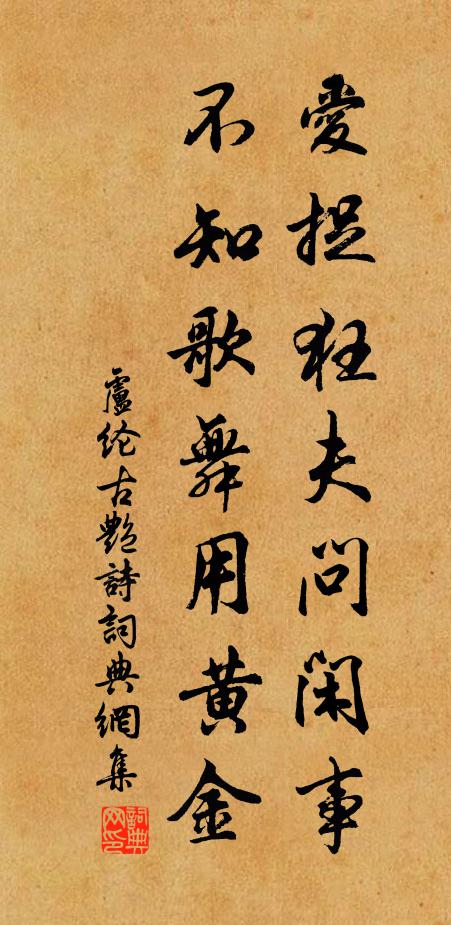 愛捉狂夫問閑事
不知歌舞用黄金
盧纶古艷詩詞典網集
詞典网印